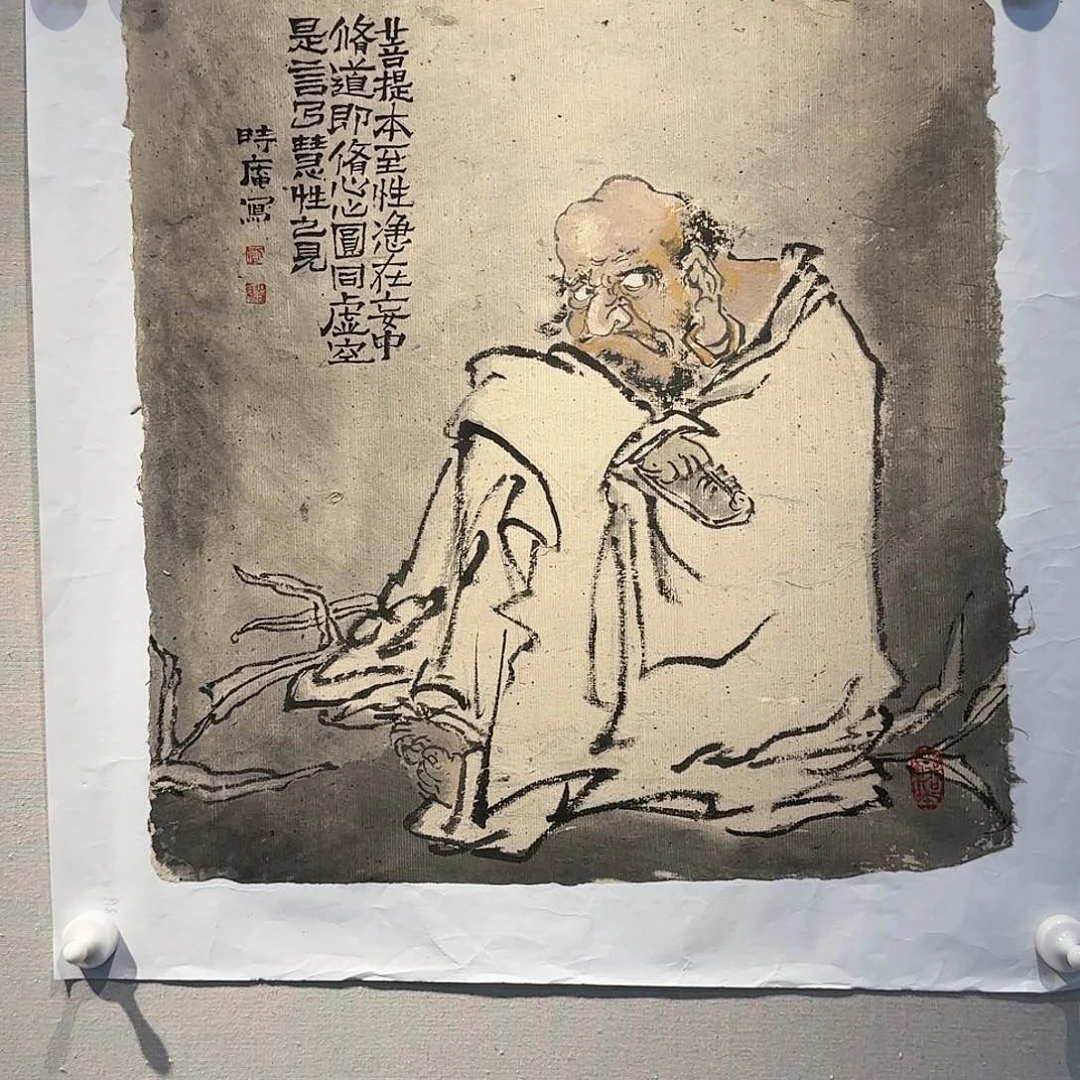 菩提本至性淨在妄中
脩道即脩心心圓同虛空
是言乃慧性之見
時庵寫